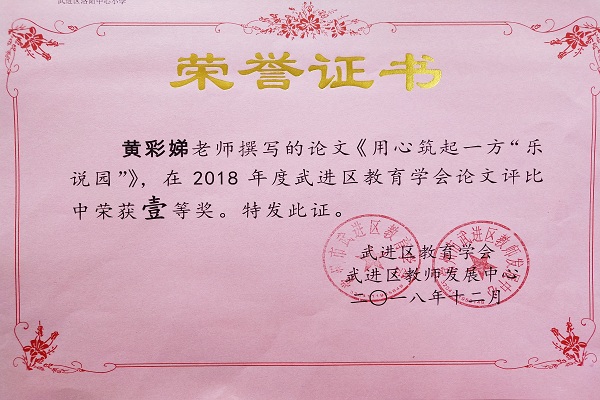 武进区洛阳中心小学
荣誉证书
黄彩娣老师撰写的论文《用心筑起一方“乐
说园”》，在 2018 年度武进区教育学会论文评比
中荣获壹等奖。特发此证。
武进区教育学会
武进区教师发展中心
二〇一八年十二月